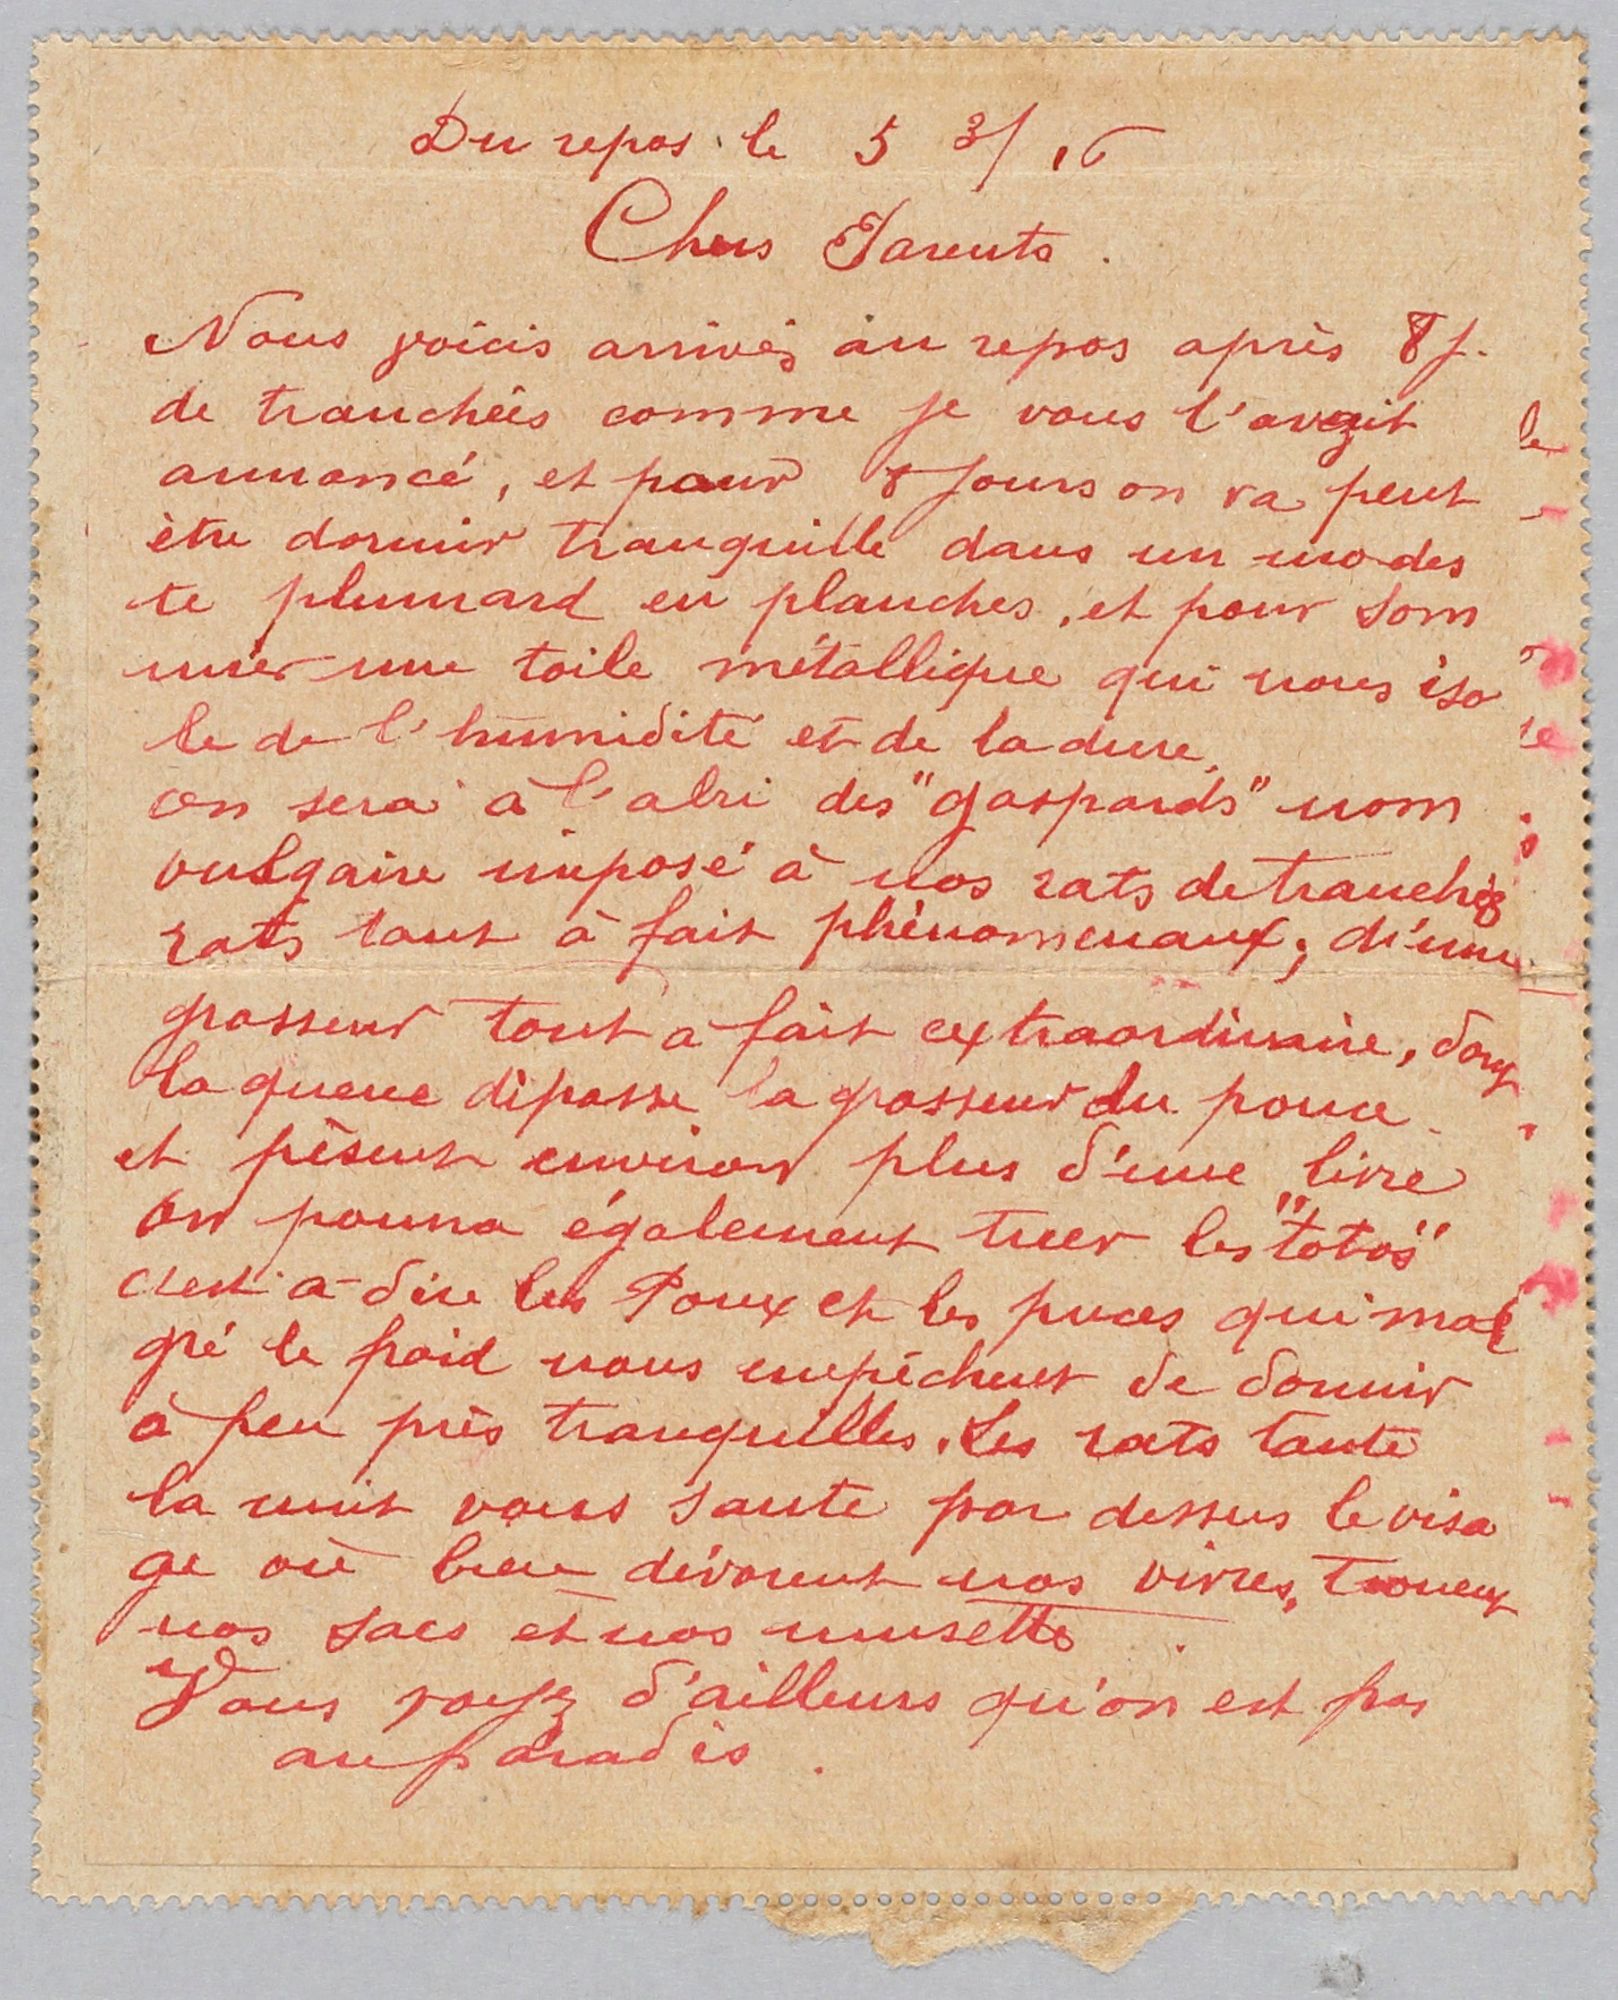 Du repos le 5 3/16
Chers Parents.
Nous voicis arrivés au repos après 8 j.
de tranchées comme je vous l'avait
annoncé, et pour 8 jours on va peut
être dormir tranquille dans un modes
te plumard en planches, et pour som
mier une toile métallique qui nous iso
le de l'humidité et de la dure,
on sera à l'abri des "gaspards" nom
vulgaire imposé à nos rats de tranchées
rats tout à fait phénomenaux, d'une
grosseur tout a fait extraordinaire, dont
la queue dépasse la grosseur du pouce
et pèsent environ plus d'une livre
On pourra également tuer les "totos"
c'est-a-dire les Poux et les puces qui mal
gré le froid nous empéchent de dormir
à peu près tranquilles. Les rats toute
la nuit vous saute par dessus le visa
ge où bien dévorent nos vivres, trouent
nos sacs et nos musettes.
Vous voyez d'ailleurs qu'on est pas
au paradis.